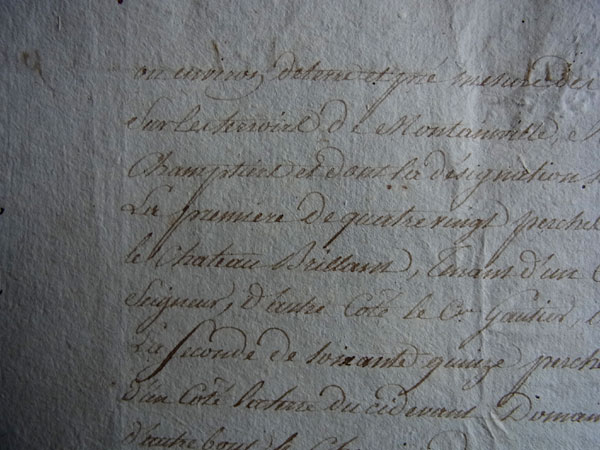 ou environ, de terre et pré mesure des
Sur le terroire de Montainville,
Champtiers et dont la désignation
La première de quatre vingt perches
le Chateau Brillant, tenant d'un
Seigneur, d'autre Coté le Cen Gautier,
La Seconde de soixante quinze perche
d'un Coté la terre du cidevant Domai
d'autre bout le Chemin